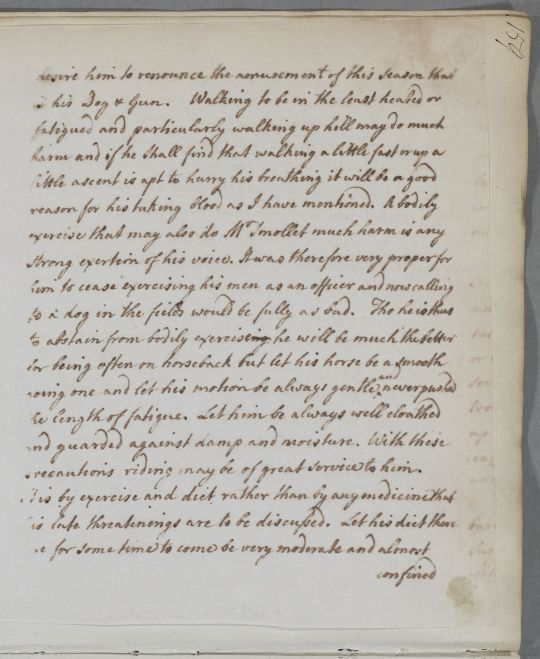 159
desire him to renounce the amusement of this season that
is his Dog & Gun. Walking to be in the least heated or
fatigued and particularly walking up hill may do much
harm and if he shall find that walking a little fast or up a
little ascent is apt to hurry his breathing it will be a good
reason for his taking blood as I have mentioned. A bodily
exercise that may also do Mr Smollet much harm is any
strong exertion of his voice. It was therefore very proper for
him to cease exercising his men as an officer and now calling
to a dog in the fields would be fully as bad. Tho he is thus
to abstain from bodily exercising he will be much the better
for being often on horseback but let his horse be a smooth
going one and let his motion be always gentle and never pushed
the length of fatigue. Let him be always well cloathed
and guarded against damp and moisture. With these
precautions riding may be of great service to him.
It is by exercise and diet rather than by any medicine that
his late threatenings are to be discussed. Let his diet then
be for some time to come be very moderate and almost
confined